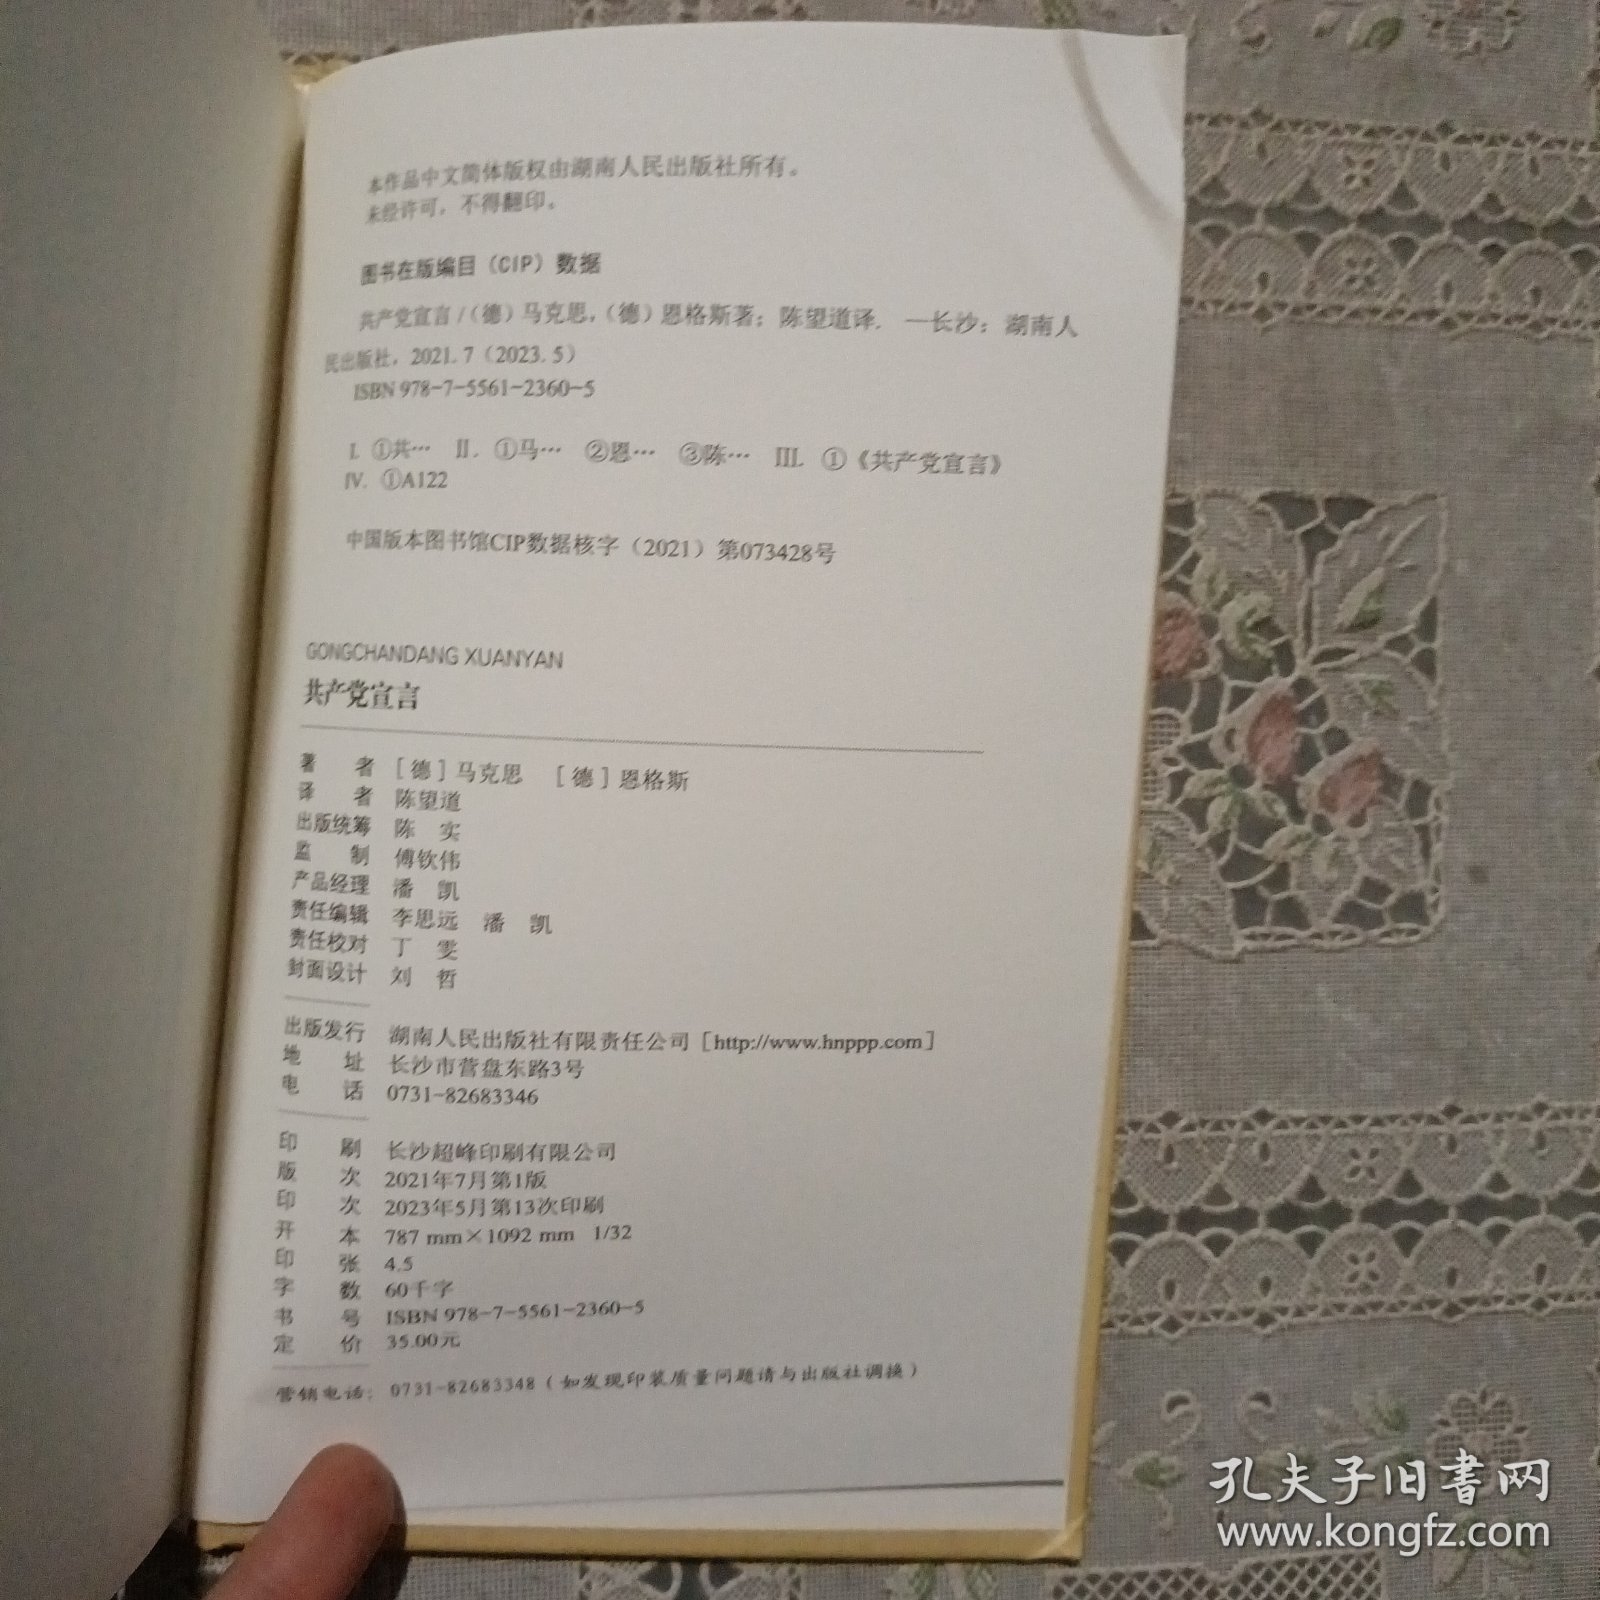 本作品中文简体版权由湖南人民出版社所有。
未经许可，不得翻印。
图书在版编目（CIP）数据
共产党宣言 /（德）马克思，（德）恩格斯著；陈望道译. —长沙：湖南人
民出版社，2021.7（2023.5）
ISBN 978-7-5561-2360-5
Ⅰ. ①共… Ⅱ. ①马… ②恩… ③陈… Ⅲ. ①《共产党宣言》
Ⅳ. ①A122
中国版本图书馆CIP数据核字（2021）第073428号
GONGCHANDANG XUANYAN
共产党宣言
著 者 ［德］马克思 ［德］恩格斯
译 者 陈望道
出版统筹 陈 实
监 制 傅钦伟
产品经理 潘 凯
责任编辑 李思远 潘 凯
责任校对 丁 雯
封面设计 刘 哲
出版发行 湖南人民出版社有限责任公司［http://www.hnppp.com］
地 址 长沙市营盘东路3号
电 话 0731-82683346
印 刷 长沙超峰印刷有限公司
版 次 2021年7月第1版
印 次 2023年5月第13次印刷
开 本 787 mm×1092 mm 1/32
印 张 4.5
字 数 60千字
书 号 ISBN 978-7-5561-2360-5
定 价 35.00元
营销电话：0731-82683348（如发现印装质量问题请与出版社调换）
孔夫子旧书网
www.kongfz.com